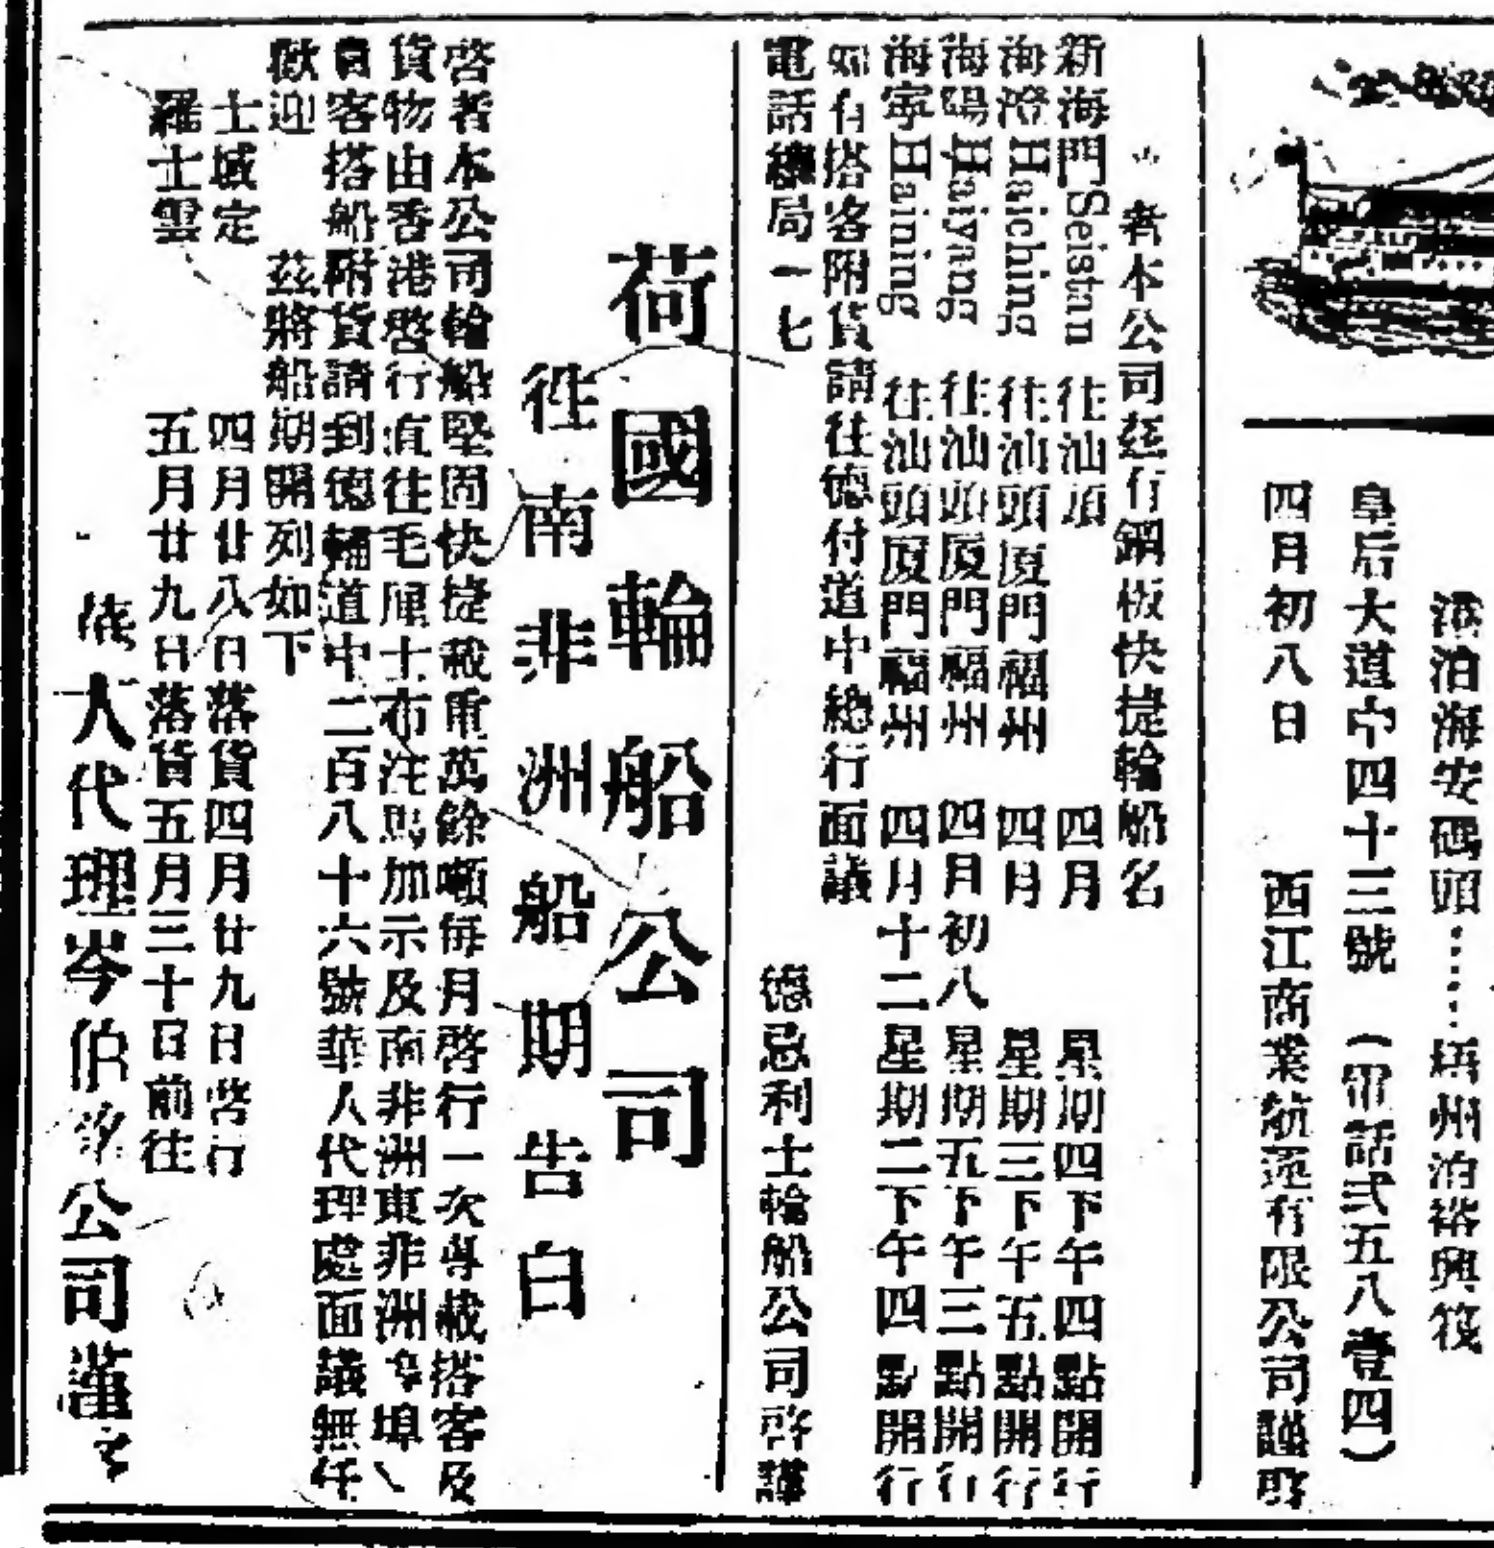 港泊海安碼頭……梧州泊裕興筏
皇后大道中四十三號 (電話弍五八壹四)
四月初八日 西江商業航運有限公司謹啓
者本公司茲有鋼板快捷輪船名
新海門Seistan 往汕頭 四月 星期四下午四點開行
海澄Haiching 往汕頭厦門福州 四月 星期三下午五點開行
海陽Haiyang 往汕頭厦門福州 四月初八 星期五下午三點開行
海寗Haining 往汕頭厦門福州 四月十二 星期二下午四點開行
如有搭客附貨請往德付道中總行面議
電話總局一七 德忌利士輪船公司啓謹
荷國輪船公司
往南非洲船期告白
啓者本公司輪船堅固快捷載重萬餘噸每月啓行一次專載搭客及
貨物由香港啓行直往毛厘士布注馬加示及南非洲東非洲埠
客搭船附貨請到德輔道中二百八十六號華人代理處面議無任
歡迎 茲將船期開列如下
士域定 四月廿八日落貨四月廿九日啓行
羅士雲 五月廿九日落貨五月三十日前往
人代理岑伯銘公司謹